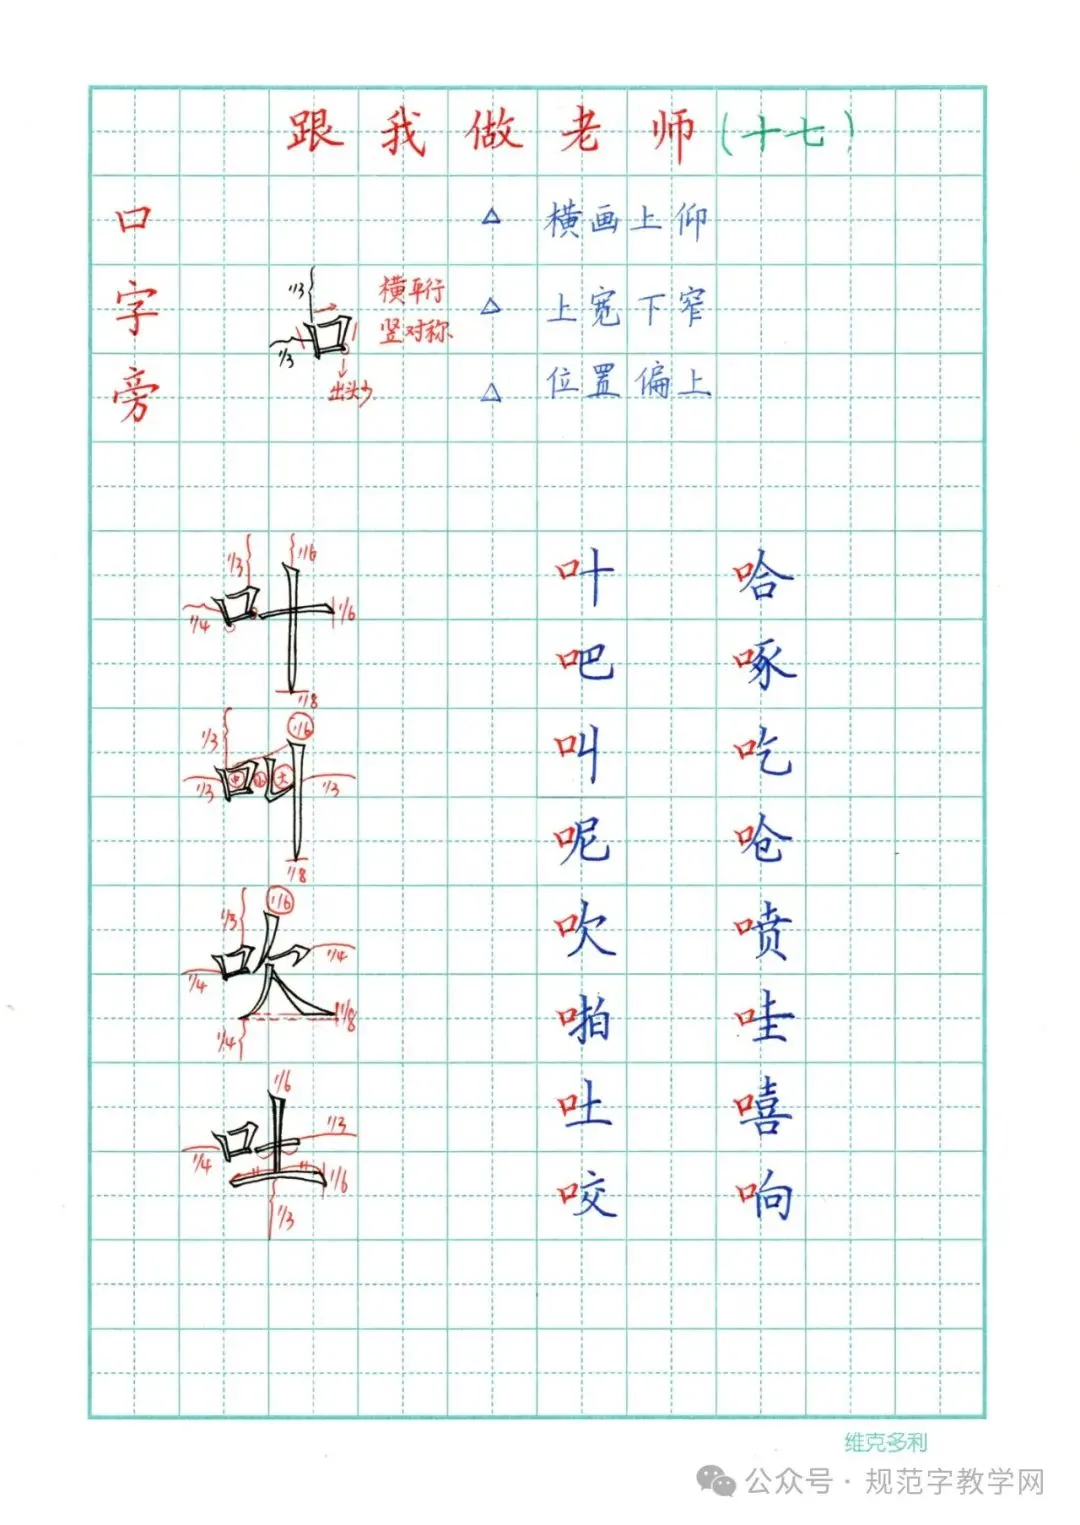 跟我做老师(十七)
口字旁
1/3
1/3
横平行
竖对称
出头
△ 横画上仰
△ 上宽下窄
△ 位置偏上
1/3 1/6
叶
1/4 1/6
1/8
叶 哈
吧 啄
1/3 1/6
叫
中 小 大
1/3 1/3
1/8
叫 吃
呢 呛
1/3 1/6
吹
1/4 1/4
1/4 1/8
吹 喷
啪 哇
1/6
吐
1/3
1/4 1/6
1/3
吐 嘻
咬 响
维克多利
公众号·规范字教学网